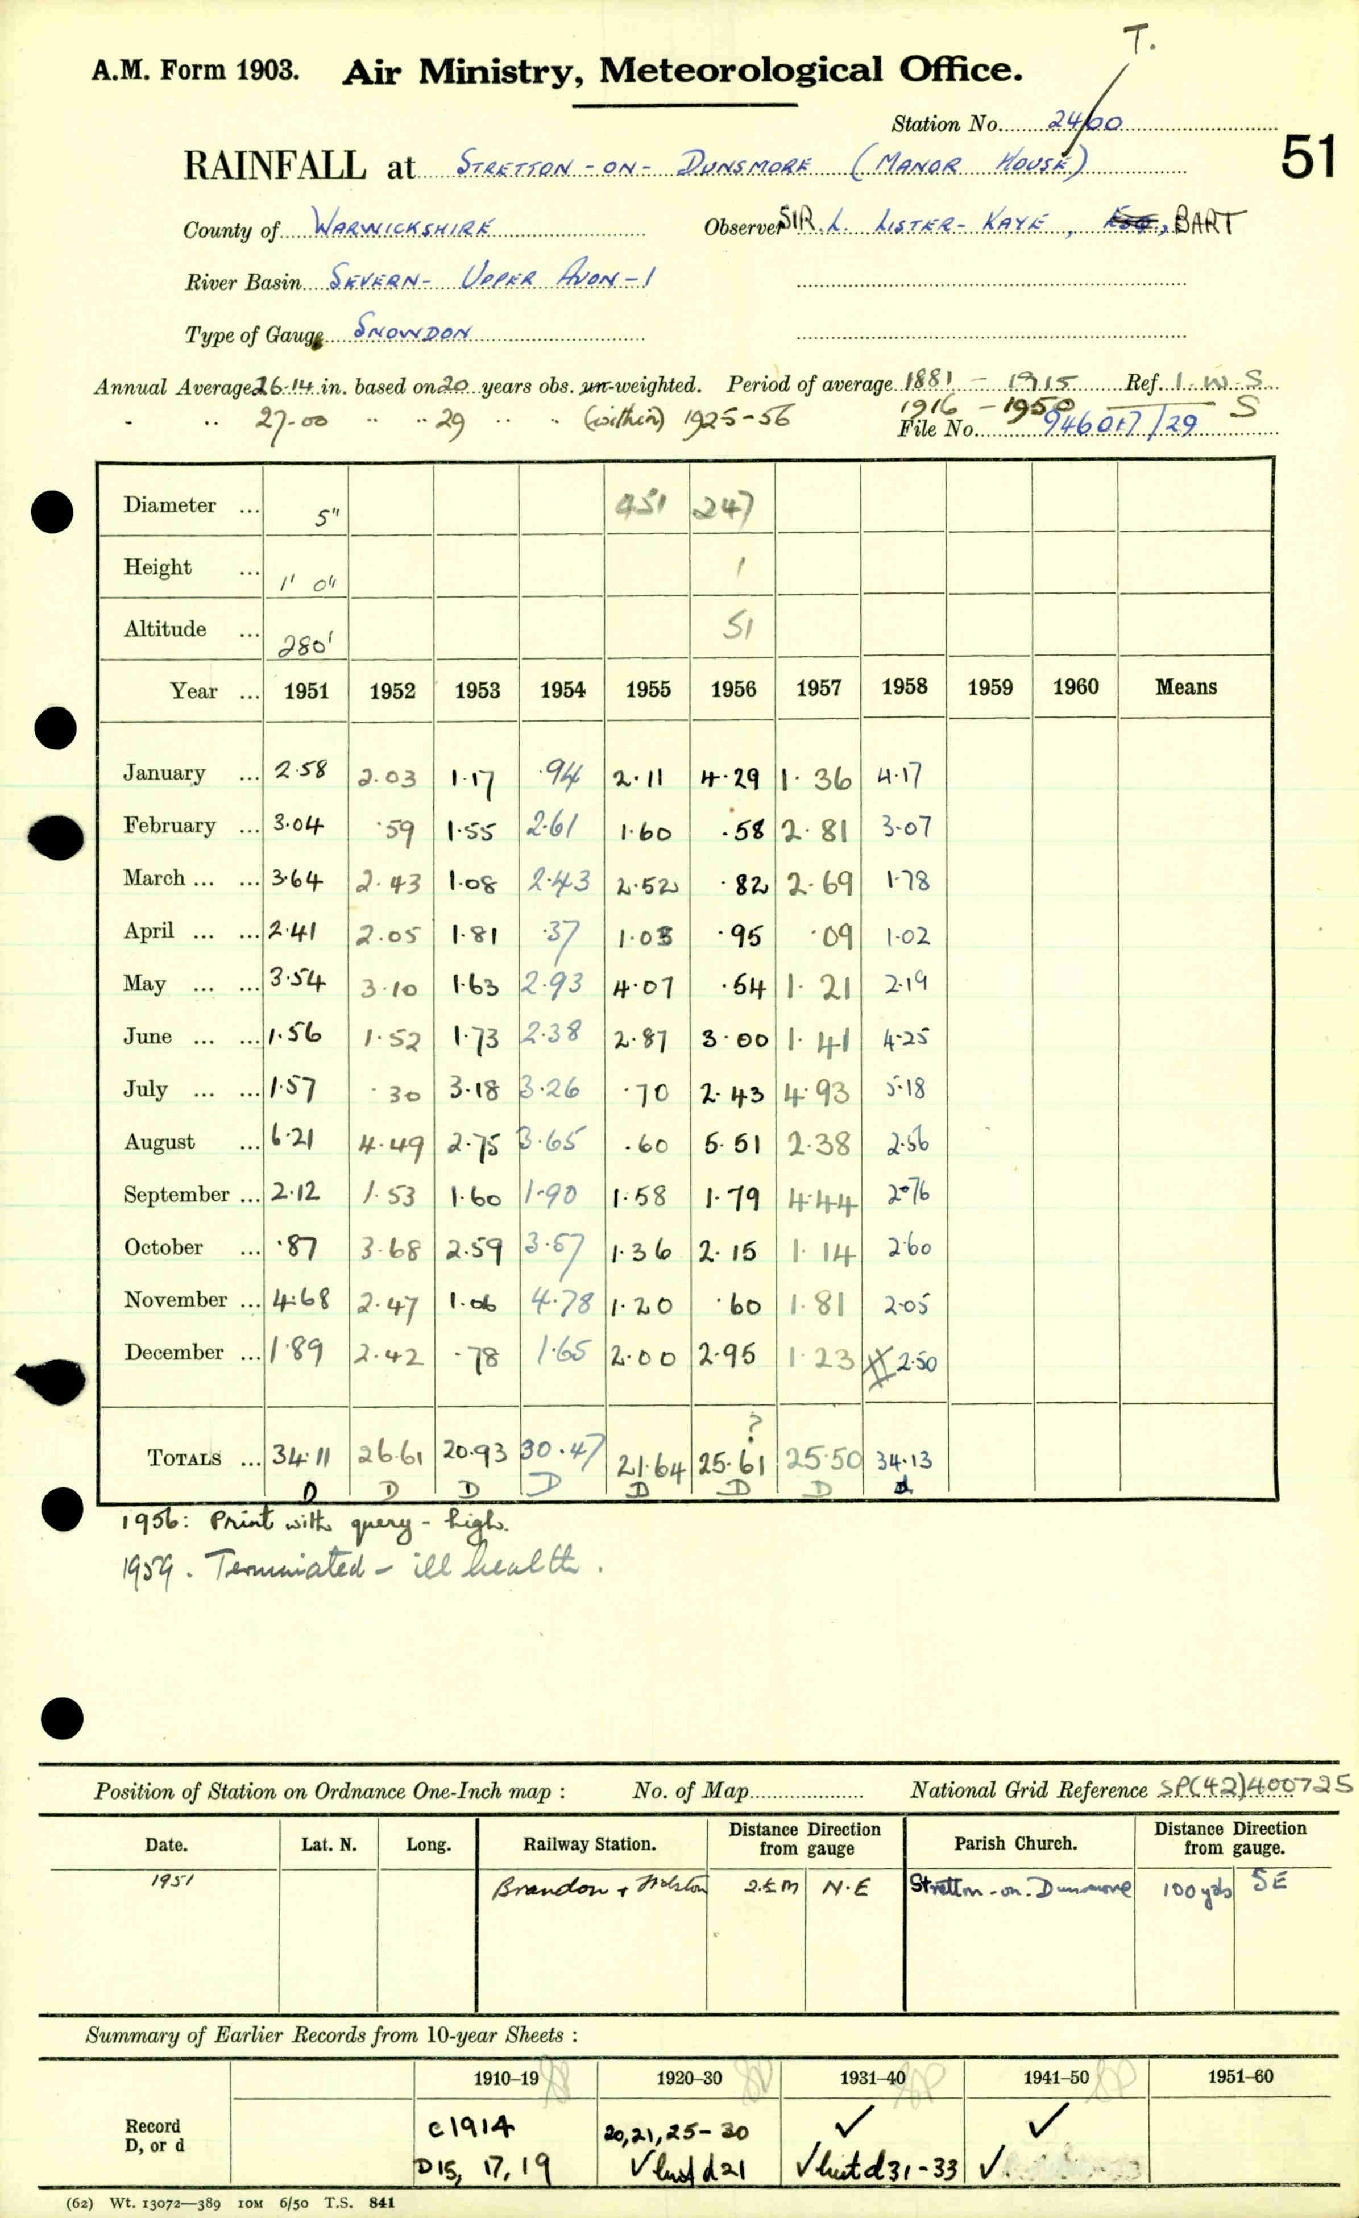 T.
A.M. Form 1903. Air Ministry, Meteorological Office.
Station No. 2400
51
RAINFALL at STRETTON-ON-DUNSMORE (MANOR HOUSE)
County of WARWICKSHIRE Observer SIR L. LISTER-KAYE, Esq, BART
River Basin SEVERN- UPPER AVON-1
Type of Gauge SNOWDON
Annual Average 26.14 in. based on 20 years obs. un-weighted. Period of average 1881 - 1915 Ref. I.W.S
1916 - 1950 S
" " 27.00 " " 29 " " (within) 1925-56 File No. 946017/29
Diameter ... 5" 451 247
Height ... 1' 0" 1
Altitude ... 280' 51
Year ... 1951 1952 1953 1954 1955 1956 1957 1958 1959 1960 Means
January ... 2.58 2.03 1.17 .94 2.11 4.29 1.36 4.17
February ... 3.04 .59 1.55 2.61 1.60 .58 2.81 3.07
March ... ... 3.64 2.43 1.08 2.43 2.52 .82 2.69 1.78
April ... ... 2.41 2.05 1.81 .37 1.03 .95 .09 1.02
May ... ... 3.54 3.10 1.63 2.93 4.07 .54 1.21 2.19
June ... ... 1.56 1.52 1.73 2.38 2.87 3.00 1.41 4.25
July ... ... 1.57 .30 3.18 3.26 .70 2.43 4.93 5.18
August ... 6.21 4.49 2.75 3.65 .60 5.51 2.38 2.56
September ... 2.12 1.53 1.60 1.90 1.58 1.79 4.44 2.76
October ... .87 3.68 2.59 3.57 1.36 2.15 1.14 2.60
November ... 4.68 2.47 1.06 4.78 1.20 .60 1.81 2.05
December ... 1.89 2.42 .78 1.65 2.00 2.95 1.23 # 2.50
?
TOTALS ... 34.11 26.61 20.93 30.47 21.64 25.61 25.50 34.13
D D D D D D D d
1956: Print with query - high.
1959. Terminated - ill health.
Position of Station on Ordnance One-Inch map : No. of Map National Grid Reference SP(42)400725
Date. Lat. N. Long. Railway Station. Distance from Direction gauge Parish Church. Distance from Direction gauge.
1951 Brandon + Wolston 2½ M N.E Stretton-on-Dunsmore 100 yds SE
Summary of Earlier Records from 10-year Sheets :
1910–19 1920–30 1931–40 1941–50 1951–60
Record c1914 20,21,25-30 ✓ ✓
D, or d D15, 17, 19 ✓ but d21 ✓ but d31-33 ✓
(62) Wt. 13072—389 10M 6/50 T.S. 841